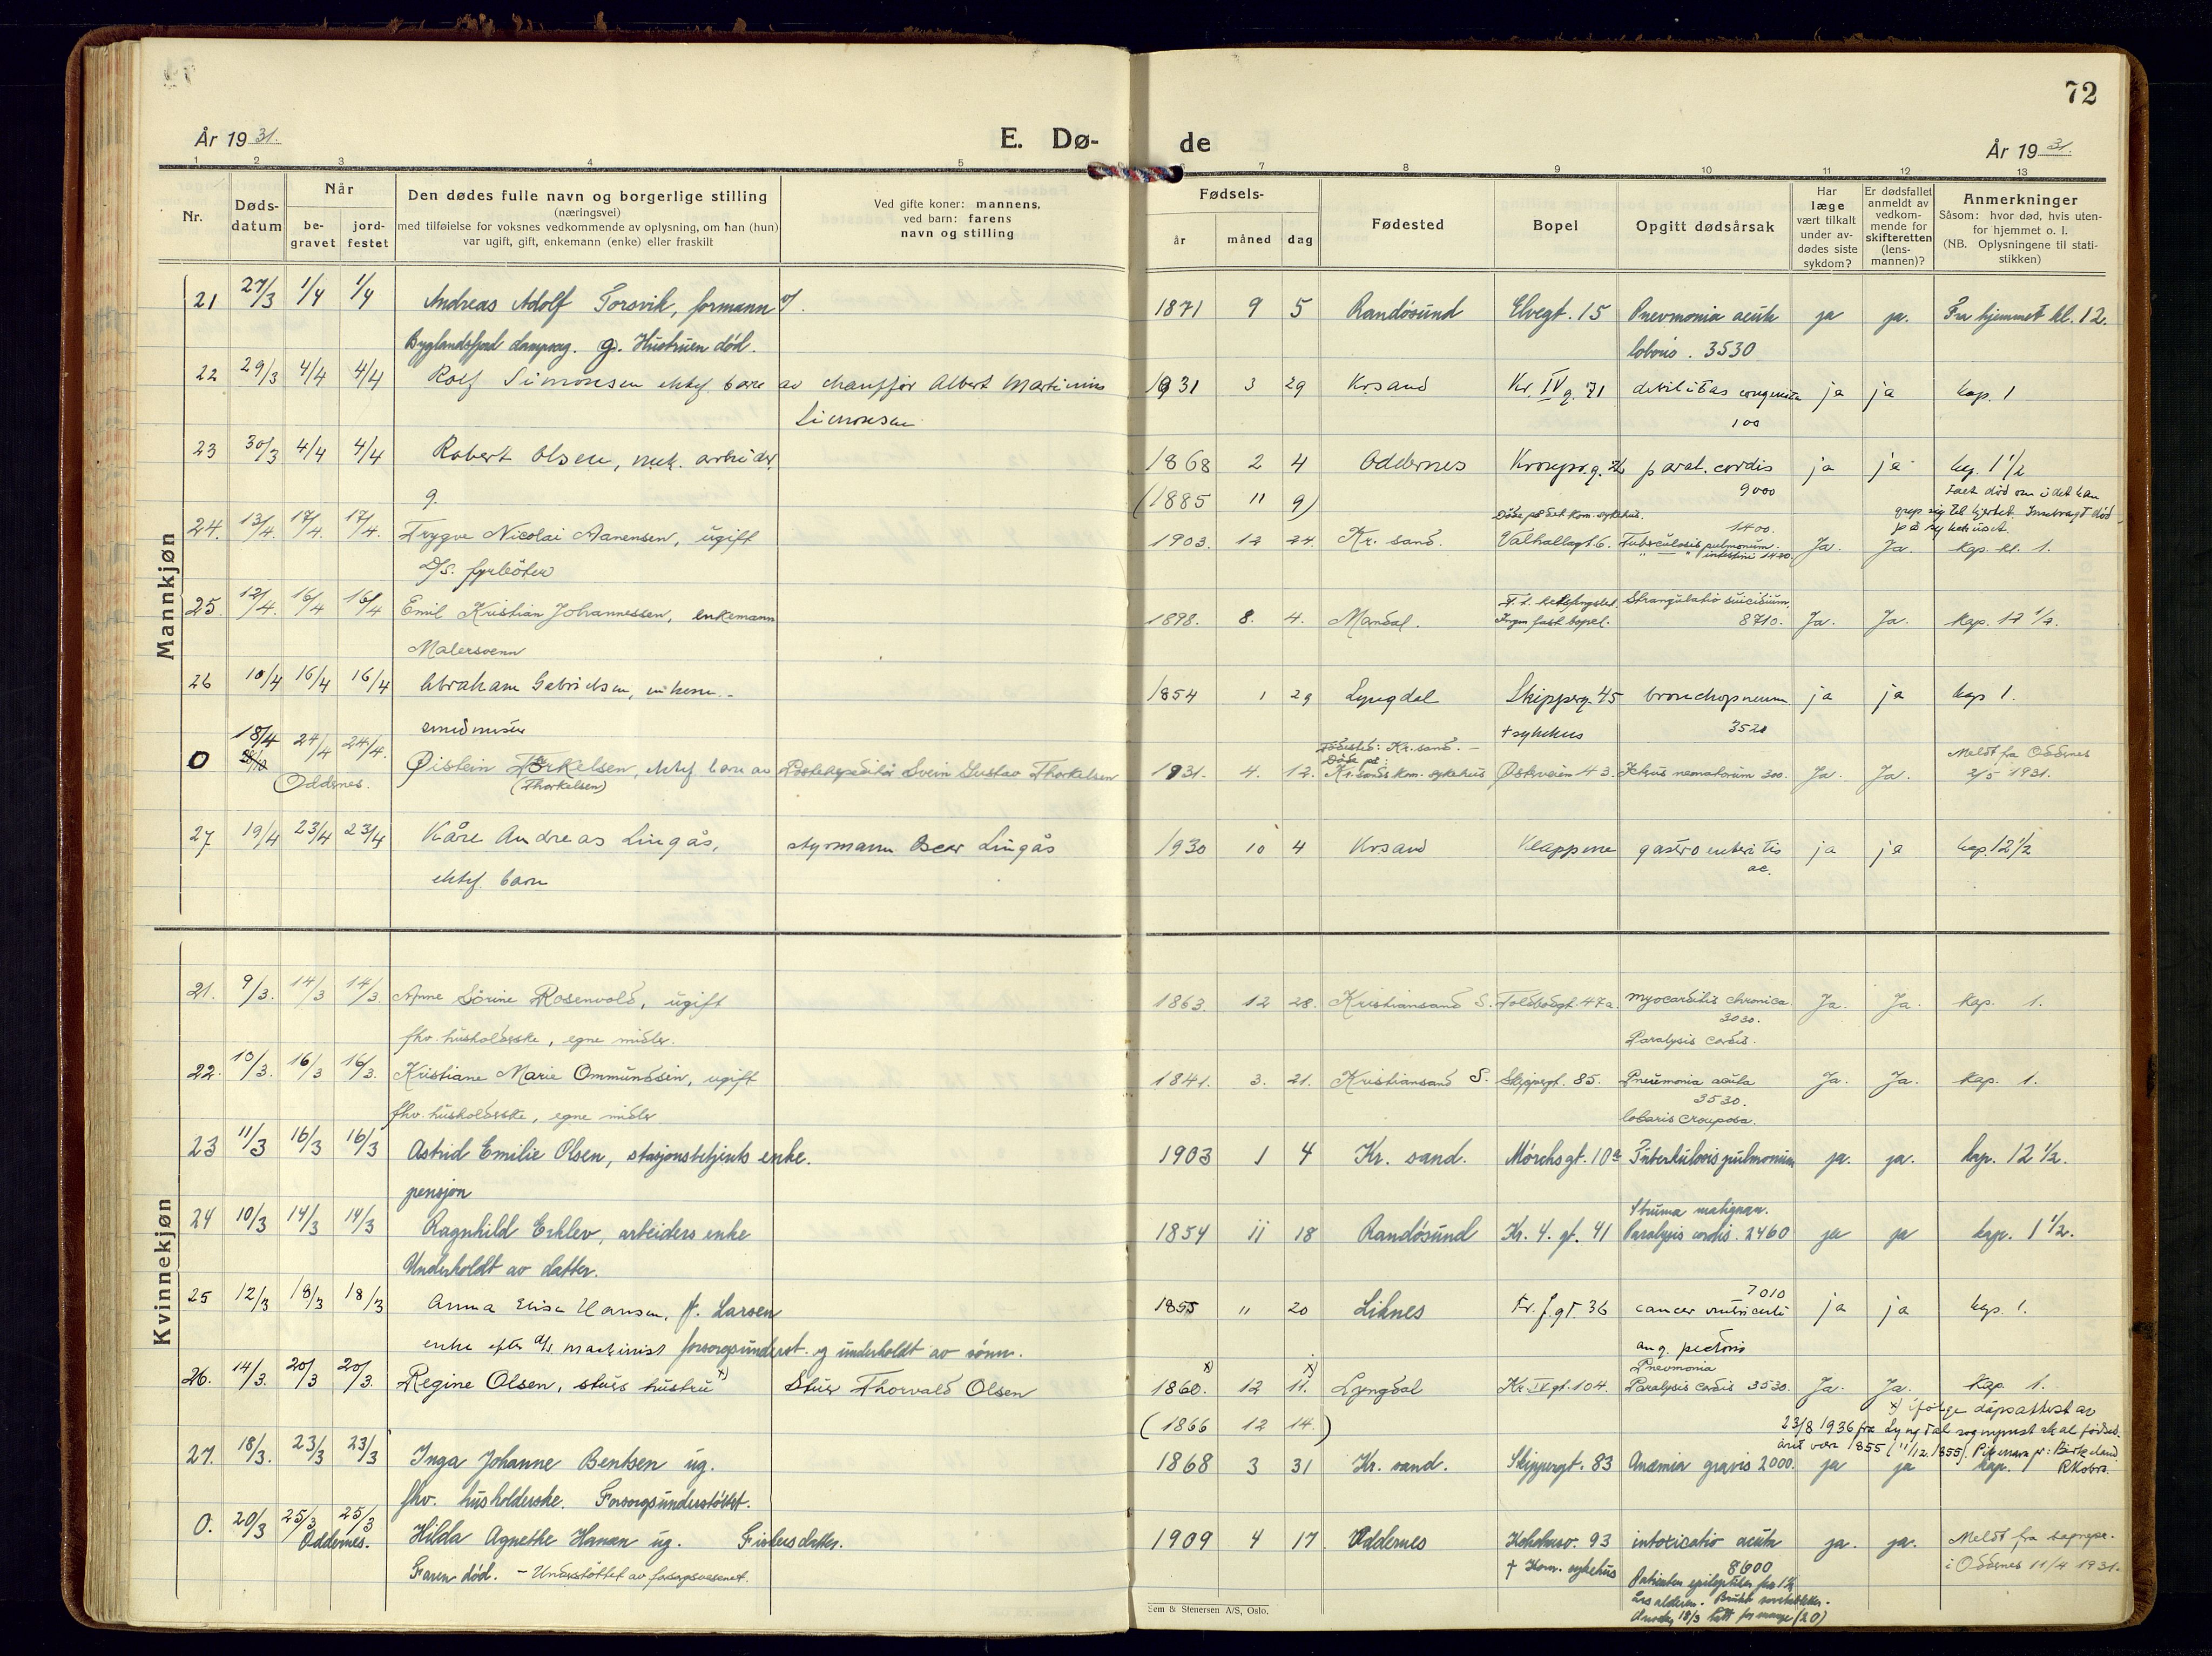 72
År 1931.
E. Dø-
de
År 1931.
1 2 3 4 5 6 7 8 9 10 11 12 13
Nr.
Døds-
datum
Når
be-
gravet
jord-
festet
Den dødes fulle navn og borgerlige stilling
(næringsvei)
med tilføielse for voksnes vedkommende av oplysning, om han (hun)
var ugift, gift, enkemann (enke) eller fraskilt
Ved gifte koner: mannens,
ved barn: farens
navn og stilling
Fødsels-
år måned dag
Fødested
Bopel
Opgitt dødsårsak
Har
læge
vært tilkalt
under av-
dødes siste
sykdom?
Er dødsfallet
anmeldt av
vedkom-
mende for
skifteretten
(lens-
mannen)?
Anmerkninger
Såsom: hvor død, hvis uten-
for hjemmet o. l.
(NB. Oplysningene til stati-
stikken)
Mannkjøn
21 27/3 1/4 1/4 Andreas Adolf Torsvik, formann v/. 1871 9 5 Randøsund Elvegt. 15 Pnevmonia acuta ja ja. Fra hjemmet kl. 12.
Byglandsfjord dampsag. g. Hustruen død. lobaris. 3530
22 29/3 4/4 4/4 Rolf Simonsen ektef. barn av chauffør Albert Martinius 1931 3 29 Krsand Kr. IV g. 71 debilitas congenita ja ja kap. 1
Simonsen 100
23 30/3 4/4 4/4 Robert Olsen, mek. arbeider, 1868 2 4 Oddernes paral. cordis ja ja kap. 1 1/2
g. (1885 11 9) 9000
Døde på det kom. sykehus. 1400.
24. 13/4. 17/4. 17/4. Trygve Nicolai Aanensen, ugift 1903. 12 24. Kr. sand. Valhallagt. 6. Tuberculosis pulmonum. Ja. Ja. Kap. kl. 1.
D/S. fyrbøter
25. 12/4. 16/4 16/4 Emil Kristian Johannessen, enkemann 1898. 8. 4. Mandal. Ingen fast bopel. Strangulatio suicidium. 8710. Ja. Ja. Kap. 12 1/2.
Malersvenn
26 10/4 16/4 16/4 Abraham Gabrielsen, enkem. - 1854 1 29 Lyngdal Skipperg. 45 bronchopneum ja ja kap 1.
smedmester + sykehus 3520
Fødested: Kr. sand. - Meldt fra Oddernes
0 18/4 24/4 24/4. Øistein Torkelsen, ektef. barn av Postekspeditør Svein Gustav Thorkelsen 1931. 4. 12. Døde på: Kr. sands kom. sykehus Østerveien 43. Icterus neonatorum 300. Ja. Ja. 2/5 1931.
Oddernes. (Thorkelsen)
27 19/4 23/4 23/4 Kåre Andreas Lingås, styrmann Oscar Lingås 1930 10 4 Krsand Klappene gastro enteritis ja ja kap. 12 1/2
ektef. barn ac.
Kvinnekjøn
21. 9/3. 14/3 14/3. Anne Sørine Rosenvold, ugift 1863. 12 28. Kristiansand S. Toldbodgt. 47a. Myocarditis chronica. Ja. Ja. Kap. 1.
3030.
fhv. husholderske, egne midler. Paralysis cordis.
22. 10/3. 16/3 16/3. Kristiane Marie Ommundsen, ugift 1841. 3. 21. Kristiansand S. Skippergt. 85. Pneumonia acuta Ja. Ja. Kap. 1.
3530.
fhv. husholderske, egne midler lobaris crouposa.
23 11/3 16/3 16/3 Astrid Emilie Olsen, stasjonsbetjents enke. 1903 1 4 Kr. sand. Mørchsgt. 10a Tuberkulosis pulmonum ja. ja. kap. 12 1/2.
pensjon
Struma malignan.
24 10/3 14/3 14/3 Ragnhild Erklev, arbeiders enke 1854 11 18 Randøsund Kr. 4. gt. 41 Paralysis cordis. 2460 ja ja kap. 1 1/2.
Underholdt av datter.
25 12/3 18/3 18/3 Anna Elise Hansen, f. Larsen 1855 11 20 Liknes Fr. f. gt 36 7010 cancer ventriculi ja ja kap. 1.
enke efter d/s machinist forsorgsunderst. og underholdt av sønn. ang. pectoris
Pnevmonia
26. 14/3. 20/3 20/3. Regine Olsen, stuers hustru x) Stuer Thorvald Olsen 1860. x) 12 11. x) Lyngdal Kr. IV gt. 104. Paralysis cordis 3530. Ja. Ja. Kap. 1.
(1866 12 14.) x) ifølge dåpsattest av
23/8 1936 fra Lyngdal sogneprest skal fødsels-
året være 1855 (11/12.1855). Pikenavn er: Birkeland
R Kobro.
27. 18/3. 23/3 23/3 Inga Johanne Bentsen ug. 1868 3 31 Kr. sand. Skippergt. 83 Anæmia gravis 2000. ja ja kap.
fhv. husholderske. Forsorgsunderstøttet.
0. 20/3 25/3 25/3 Hilda Agnethe Hansen ug. Fiskersdatter. 1909 4 17 Oddernes 93 intoxicatio acuta ja. ja. Meldt fra sognepr.
Oddernes. i Oddernes 11/4 1931.
Faren død. - Understøttet av forsorgsvesenet. † Kom. sykehus 8600
Sem & Stenersen A/S, Oslo.